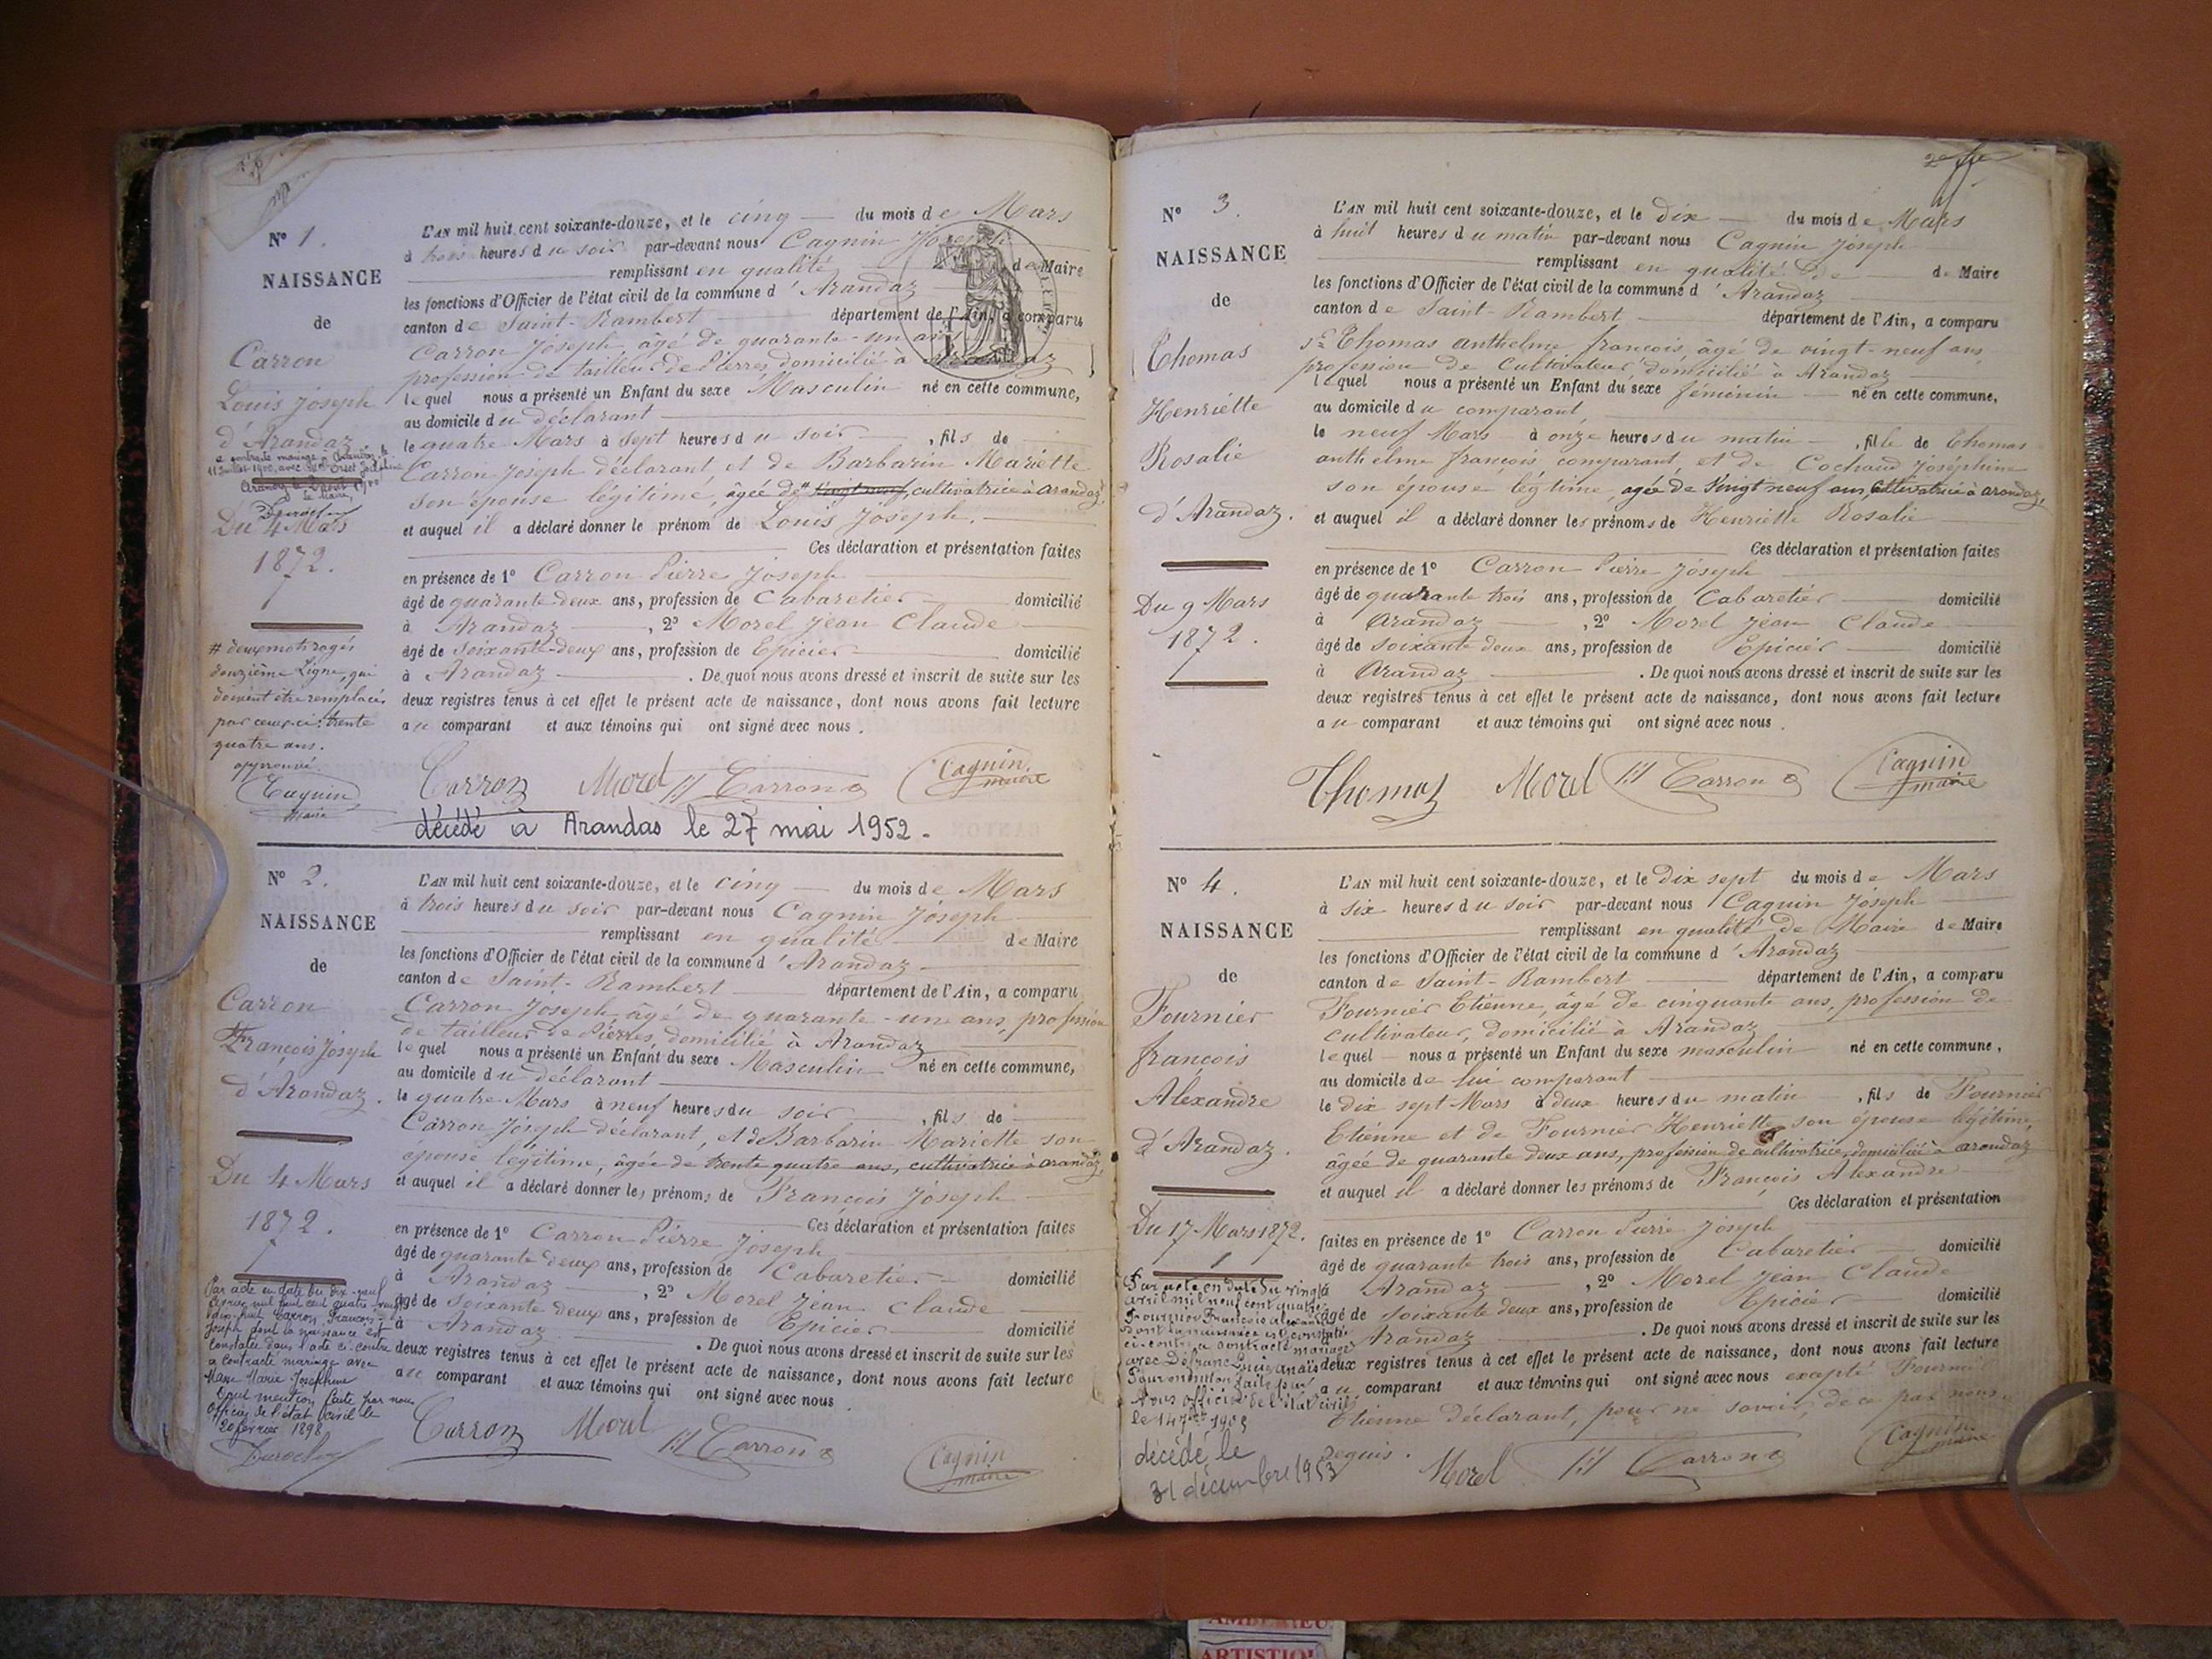 N° 1.
NAISSANCE
de
Carron
Louis Joseph
d'Arandaz.
a contracté mariage à Arandas le
11 Juillet 1900, avec
le Maire,
Du 4 Mars
1872.
# deux mots rayés
douzième Ligne, qui
doivent être remplacés
par ceux-ci: trente
quatre ans.
approuvé.
Cagnin
maire
L'AN mil huit cent soixante-douze, et le cinq du mois de Mars
à trois heures du soir par-devant nous Cagnin Joseph
remplissant en qualité de Maire
les fonctions d'Officier de l'état civil de la commune d'Arandaz
canton de Saint-Rambert département de l'Ain, a comparu
Carron Joseph, âgé de quarante-un ans
profession de tailleur de Pierres, domicilié à Arandaz
lequel nous a présenté un Enfant du sexe Masculin né en cette commune,
au domicile du déclarant
le quatre Mars à sept heures du soir, fils de
Carron Joseph déclarant et de Barbarin Mariette
son épouse légitime, âgée de # vingt neuf, cultivatrice à arandaz,
et auquel il a déclaré donner le prénom de Louis Joseph.
Ces déclaration et présentation faites
en présence de 1° Carron Pierre Joseph
âgé de quarante deux ans, profession de Cabaretier domicilié
à Arandaz, 2° Morel Jean Claude
âgé de soixante-deux ans, profession de Epicier domicilié
à Arandaz. De quoi nous avons dressé et inscrit de suite sur les
deux registres tenus à cet effet le présent acte de naissance, dont nous avons fait lecture
au comparant et aux témoins qui ont signé avec nous.
Carron Morel Carron Cagnin
maire
décédé à Arandas le 27 mai 1952.
N° 2.
NAISSANCE
de
Carron
François Joseph
d'Arandaz.
Du 4 Mars
1872.
Par acte en date du dix-neuf
février mil huit cent quatre-vingt
dix-huit Carron François
Joseph dont la naissance est
constatée dans l'acte ci-contre
a contracté mariage avec
Marie Josephine
Dont mention faite par nous
officier de l'état civil le
20 février 1898
L'AN mil huit cent soixante-douze, et le cinq du mois de Mars
à trois heures du soir par-devant nous Cagnin Joseph
remplissant en qualité de Maire
les fonctions d'Officier de l'état civil de la commune d'Arandaz
canton de Saint-Rambert département de l'Ain, a comparu
Carron Joseph, âgé de quarante-un ans, profession
de tailleur de Pierres, domicilié à Arandaz
lequel nous a présenté un Enfant du sexe Masculin né en cette commune,
au domicile du déclarant
le quatre Mars à neuf heures du soir, fils de
Carron Joseph déclarant, et de Barbarin Mariette son
épouse légitime, âgée de trente quatre ans, cultivatrice à arandaz,
et auquel il a déclaré donner les prénoms de François Joseph
Ces déclaration et présentation faites
en présence de 1° Carron Pierre Joseph
âgé de quarante deux ans, profession de Cabaretier domicilié
à Arandaz, 2° Morel Jean Claude
âgé de soixante deux ans, profession de Epicier domicilié
à Arandaz. De quoi nous avons dressé et inscrit de suite sur les
deux registres tenus à cet effet le présent acte de naissance, dont nous avons fait lecture
au comparant et aux témoins qui ont signé avec nous.
Carron Morel Carron Cagnin
maire
N° 3.
NAISSANCE
de
Thomas
Henriette
Rosalie
d'Arandaz.
Du 9 Mars
1872.
L'AN mil huit cent soixante-douze, et le dix du mois de Mars
à huit heures du matin par-devant nous Cagnin Joseph
remplissant en qualité de de Maire
les fonctions d'Officier de l'état civil de la commune d'Arandaz
canton de Saint-Rambert département de l'Ain, a comparu
sr Thomas anthelme françois, âgé de vingt-neuf ans,
profession de Cultivateur domicilié à Arandaz
lequel nous a présenté un Enfant du sexe féminin né en cette commune,
au domicile du comparant,
le neuf Mars à onze heures du matin, fille de Thomas
anthelme françois, comparant, et de Cochaud Joséphine
son épouse légtime, agée de Vingt neuf ans, Cultivatrice à arandaz,
et auquel il a déclaré donner les prénoms de Henriette Rosalie
Ces déclaration et présentation faites
en présence de 1° Carron Pierre Joseph
âgé de quarante trois ans, profession de Cabaretier domicilié
à Arandaz, 2° Morel Jean Claude
âgé de soixante deux ans, profession de Epicier domicilié
à Arandaz. De quoi nous avons dressé et inscrit de suite sur les
deux registres tenus à cet effet le présent acte de naissance, dont nous avons fait lecture
au comparant et aux témoins qui ont signé avec nous.
Thomas Morel Carron Cagnin
maire
N° 4.
NAISSANCE
de
Fournier
françois
Alexandre
d'Arandaz.
Du 17 Mars 1872.
Par acte en date du vingt
avril mil neuf cent quatre
Fournier François alexandre
dont la naissance est constatée
ci-contre a contracté mariage
avec
Pour mention faite par
nous officier de l'état civil
décédé le
31 décembre 1953
L'AN mil huit cent soixante-douze, et le dix sept du mois de Mars
à six heures du soir par-devant nous Cagnin Joseph
remplissant en qualité de Maire de Maire
les fonctions d'Officier de l'état civil de la commune d'Arandaz
canton de Saint-Rambert département de l'Ain, a comparu
Fournier Etienne, âgé de cinquante ans, profession de
cultivateur, domicilié à Arandaz
lequel nous a présenté un Enfant du sexe masculin né en cette commune,
au domicile de lui comparant
le dix sept Mars à deux heures du matin, fils de Fournier
Etienne et de Fournier Henriette son épouse légitime,
âgée de quarante deux ans, profession de cultivatrice, domiciliée à arandaz
et auquel il a déclaré donner les prénoms de François Alexandre
Ces déclaration et présentation
faites en présence de 1° Carron Pierre Joseph
âgé de quarante trois ans, profession de Cabaretier domicilié
à Arandaz, 2° Morel Jean Claude
âgé de soixante deux ans, profession de Epicier domicilié
à Arandaz. De quoi nous avons dressé et inscrit de suite sur les
deux registres tenus à cet effet le présent acte de naissance, dont nous avons fait lecture
au comparant et aux témoins qui ont signé avec nous excepté Fournier
Etienne déclarant, pour ne savoir, de ce par nous
requis. Morel Carron Cagnin
maire
AMBERIEU
ARTISTIQU